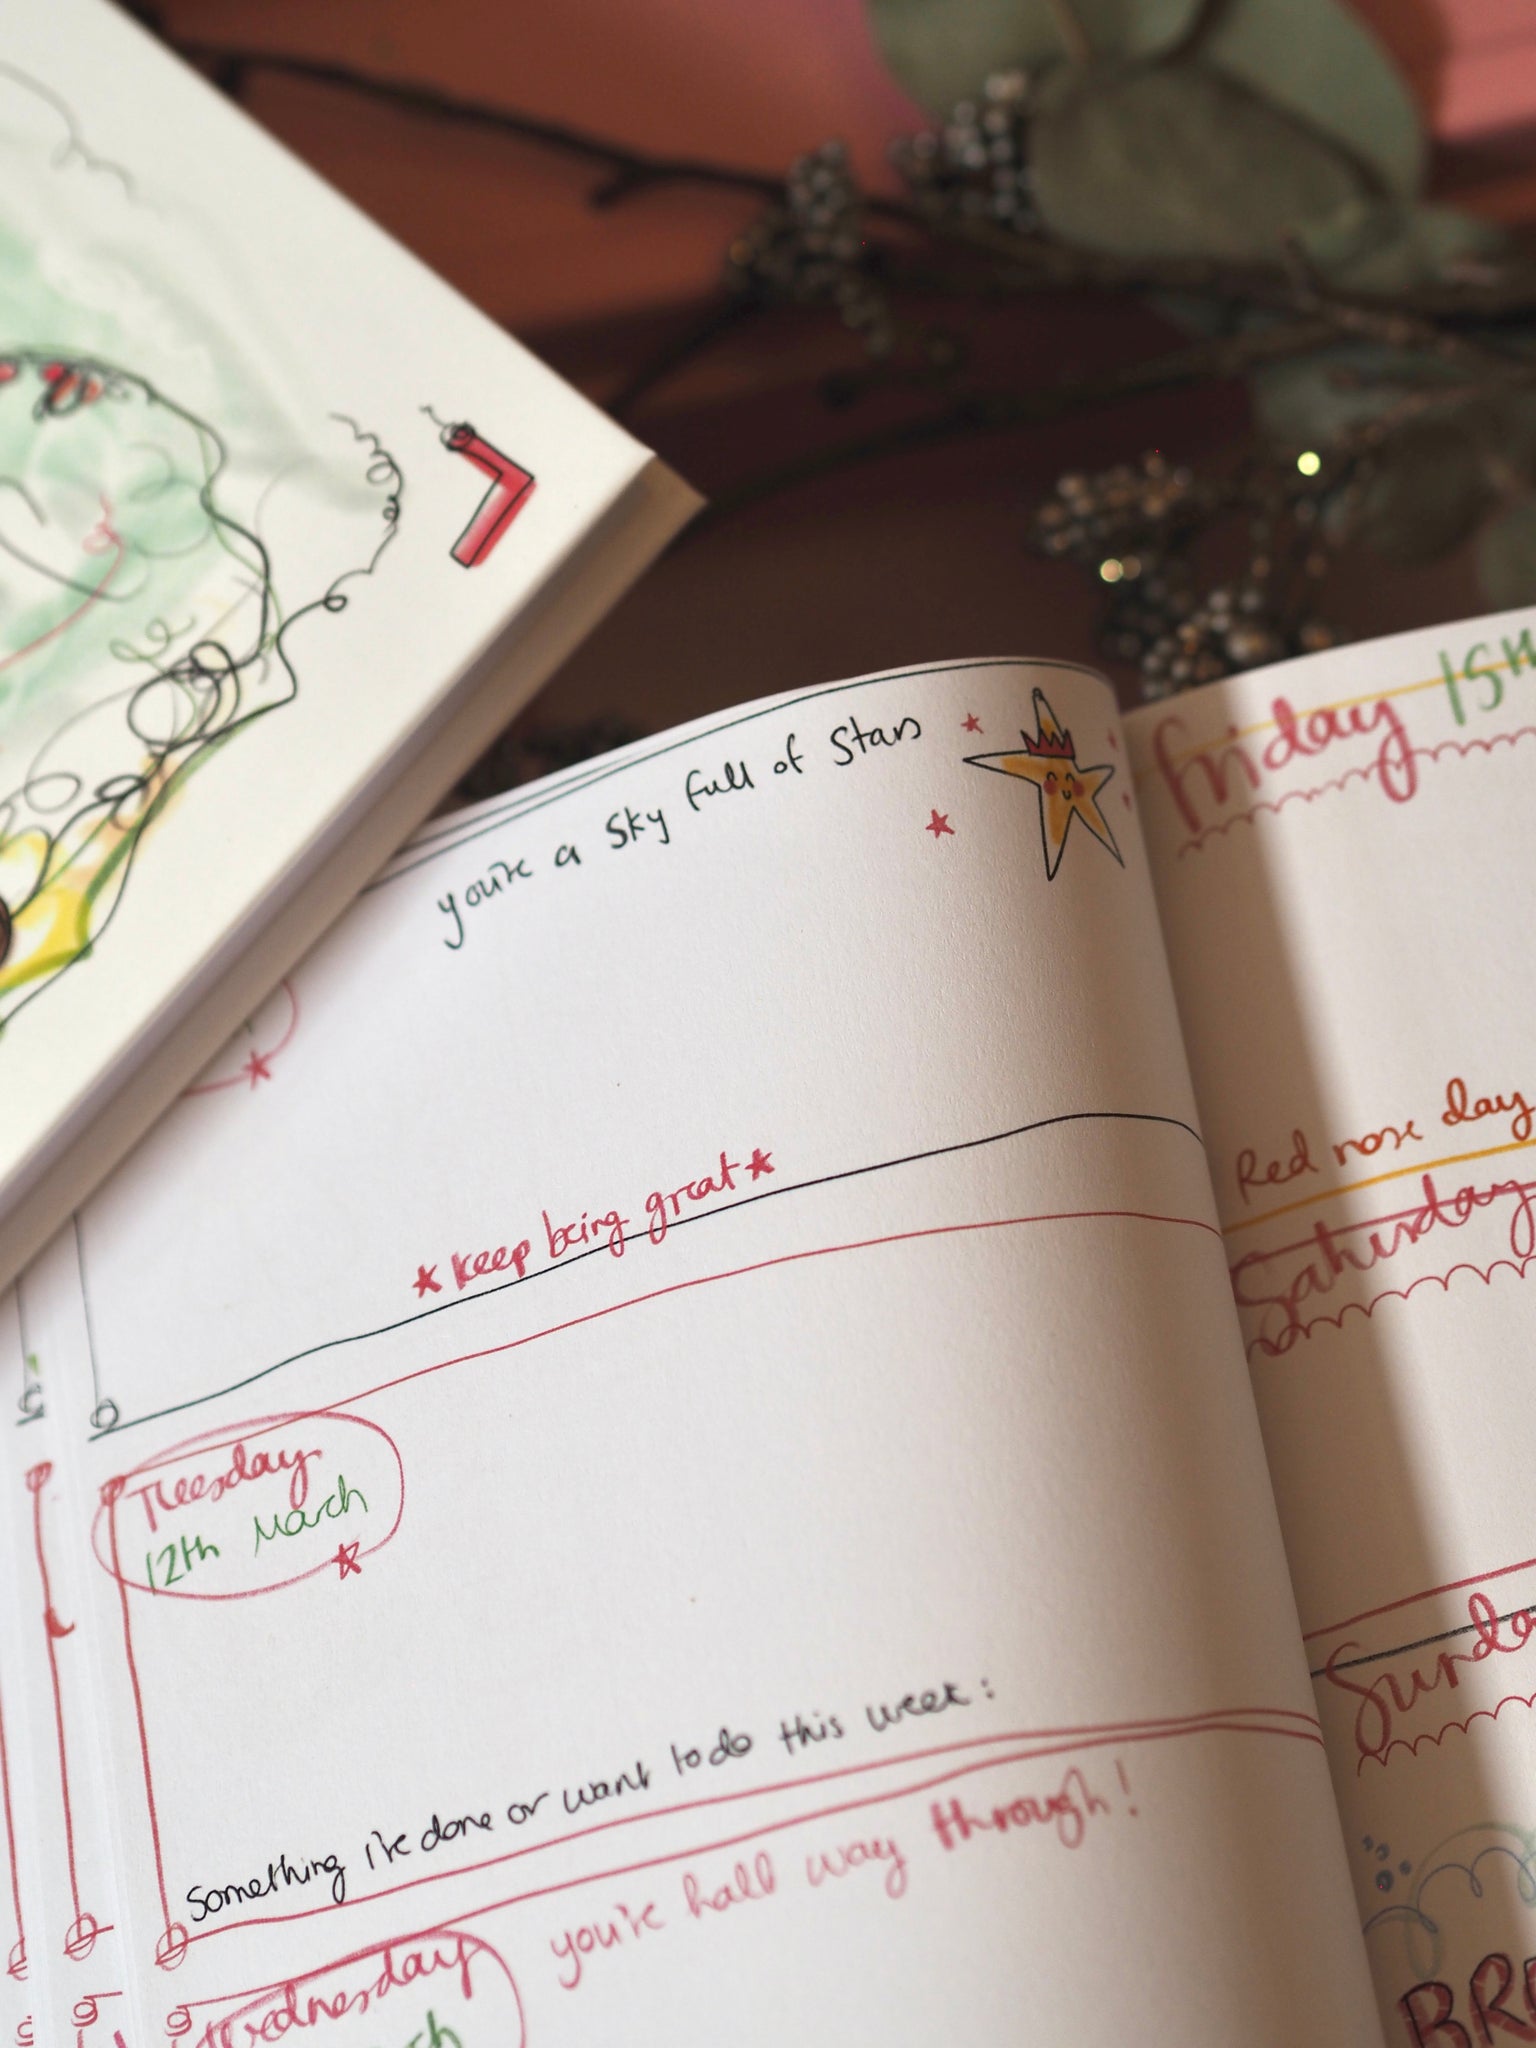 you're a sky full of stars
*keep being great*
Tuesday
12th March
Something i've done or want to do this week:
you're half way through!
Wednesday
friday 15th
Red nose day
Saturday